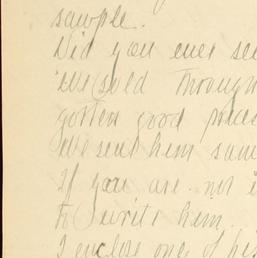 sample.
Did you ever see
We sold through
gotten good prices
We sent him sam
If you are not i
to write him.
I enclose one of his